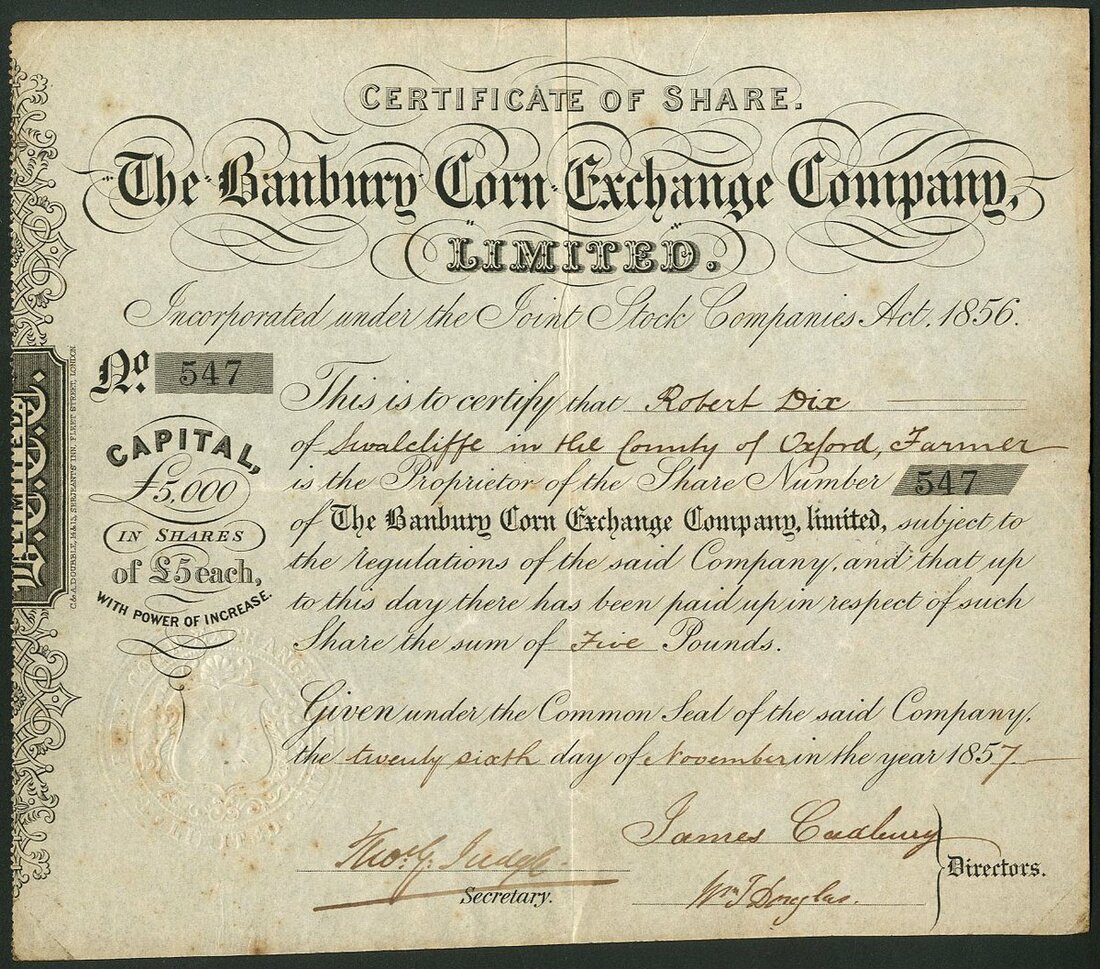 CERTIFICATE OF SHARE.
The Banbury Corn Exchange Company,
LIMITED.
Incorporated under the Joint Stock Companies Act, 1856.
No. 547
CAPITAL,
£5,000
IN SHARES
of £5 each,
WITH POWER OF INCREASE.
This is to certify that Robert Dix
of Swalcliffe in the County of Oxford, Farmer
is the Proprietor of the Share Number 547
of The Banbury Corn Exchange Company, limited, subject to
the regulations of the said Company, and that up
to this day there has been paid up in respect of such
Share the sum of Five Pounds.
Given under the Common Seal of the said Company,
the twenty sixth day of November in the year 1857
Thos. G. Judge
Secretary.
James Cadbury
Wm T Douglas.
Directors.
LIMITED.
C. & A. DOUBBLE, 14 & 15, SERJEANTS' INN, FLEET STREET, LONDON.